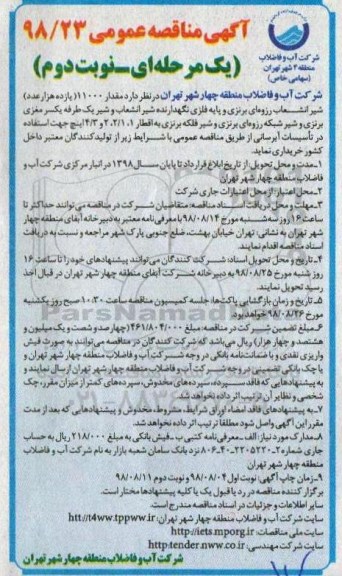 آگهی مناقصه عمومی ۹۸/۲۳
(یک مرحله‌ای_نوبت دوم)
شرکت آب و فاضلاب
منطقه ۴ شهر تهران
(سهامی خاص)
شرکت آب و فاضلاب منطقه چهار شهر تهران در نظر دارد مقدار ۱۱۰۰۰ (یازده هزار عدد)
شیر انشعاب رزوه‌ای برنزی و پایه فلزی نگهدارنده شیر انشعاب و شیر یک طرفه یکسر مغزی
برنزی و شیر شبکه رزوه‌ای برنزی و شیر فلکه برنزی به اقطار ۱، ۲/۱، ۲ و ۴/۳ اینچ جهت استفاده
در تأسیسات آبرسانی از طریق مناقصه عمومی با شرایط زیر از تولیدکنندگان معتبر داخل
کشور خریداری نماید.
۱_مدت و محل تحویل: از تاریخ ابلاغ قرارداد تا پایان سال ۱۳۹۸ در انبار مرکزی شرکت آب و
فاضلاب منطقه چهار شهر تهران
۲_محل اعتبار: از محل اعتبارات جاری شرکت
۳_مهلت و محل دریافت اسناد مناقصه: متقاضیان شرکت در مناقصه می‌توانند حداکثر تا
ساعت ۱۶ روز سه‌شنبه مورخ ۹۸/۰۸/۱۴ با معرفی‌نامه معتبر به دبیرخانه آبفای منطقه چهار
شهر تهران به نشانی: تهران خیابان بهشت، ضلع جنوبی پارک شهر مراجعه و نسبت به دریافت
اسناد مناقصه اقدام نمایند.
۴_تاریخ و محل تحویل اسناد: شرکت کنندگان می‌توانند پیشنهادهای خود را تا ساعت ۱۶
روز شنبه مورخ ۹۸/۰۸/۲۵ به دبیرخانه شرکت آبفای منطقه چهار شهر تهران در قبال اخذ
رسید تحویل نمایند.
۵_تاریخ و زمان بازگشایی پاکت‌ها: جلسه کمیسیون مناقصه ساعت ۱۰:۳۰ صبح روز یکشنبه
مورخ ۹۸/۰۸/۲۶ خواهد بود.
۶_مبلغ تضمین شرکت در مناقصه: مبلغ ۴۶۱/۸۰۴/۰۰۰ (چهارصد و شصت و یک میلیون و
هشتصد و چهار هزار) ریال می‌باشد که شرکت کنندگان در مناقصه می‌توانند به صورت فیش
واریزی نقدی و یا ضمانت‌نامه بانکی در وجه شرکت آب و فاضلاب منطقه چهار شهر تهران و
یا چک بانکی تضمینی در وجه شرکت آب و فاضلاب منطقه چهار شهر تهران ارسال نمایند و
به پیشنهادهایی که فاقد سپرده، سپرده‌های مخدوش، سپرده‌های کمتر از میزان مقرر، چک
شخصی و نظایر آن ترتیب اثر داده نخواهد شد.
۷_به پیشنهادهای فاقد امضاء اوراق شرایط، مشروط، مخدوش و پیشنهادهایی که بعد از مدت
مقرر این آگهی واصل شود مطلقا ترتیب اثر داده نخواهد شد.
۸_مدارک مورد نیاز: الف_معرفی‌نامه کتبی ب_فیش بانکی به مبلغ ۲۱۸/۰۰۰ ریال به حساب
منطقه چهار شهر تهران
۹_زمان چاپ آگهی: نوبت اول ۹۸/۰۸/۰۴ و نوبت دوم ۹۸/۰۸/۱۱
برگزار کننده مناقصه در رد یا قبول یک یا کلیه پیشنهادها مختار است.
سایر اطلاعات و جزئیات در اسناد مناقصه مندرج است.
سایت شرکت آب و فاضلاب منطقه چهار شهر تهران: htt://t4ww.tppww.ir
سایت ملی مناقصات: http://iets.mporg.ir
سایت شرکت مهندسی: http:tender.nww.co.ir
شرکت آب و فاضلاب منطقه چهار شهر تهران